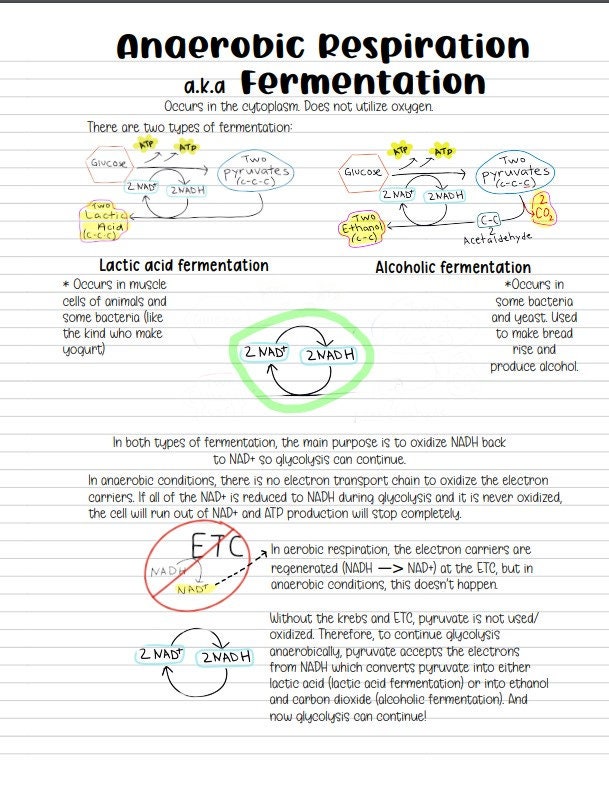 Anaerobic Respiration
a.k.a Fermentation
Occurs in the cytoplasm. Does not utilize oxygen.
There are two types of fermentation:
ATP ATP
Glucose
Two
pyruvates
(c-c-c)
2 NAD+ 2 NADH
Two
Lactic
Acid
(c-c-c)
ATP ATP
Glucose
Two
pyruvates
(c-c-c)
2 NAD+ 2 NADH
2
CO2
Two
Ethanol
(c-c)
C-C
2
Acetaldehyde
Lactic acid fermentation
* Occurs in muscle
cells of animals and
some bacteria (like
the kind who make
yogurt)
Alcoholic fermentation
*Occurs in
some bacteria
and yeast. Used
to make bread
rise and
produce alcohol.
2 NAD+ 2 NADH
In both types of fermentation, the main purpose is to oxidize NADH back
to NAD+ so glycolysis can continue.
In anaerobic conditions, there is no electron transport chain to oxidize the electron
carriers. If all of the NAD+ is reduced to NADH during glycolysis and it is never oxidized,
the cell will run out of NAD+ and ATP production will stop completely.
ETC
NADH
NAD+
In aerobic respiration, the electron carriers are
regenerated (NADH —> NAD+) at the ETC, but in
anaerobic conditions, this doesn't happen.
2 NAD+ 2NADH
Without the krebs and ETC, pyruvate is not used/
oxidized. Therefore, to continue glycolysis
anaerobically, pyruvate accepts the electrons
from NADH which converts pyruvate into either
lactic acid (lactic acid fermentation) or into ethanol
and carbon dioxide (alcoholic fermentation). And
now glycolysis can continue!